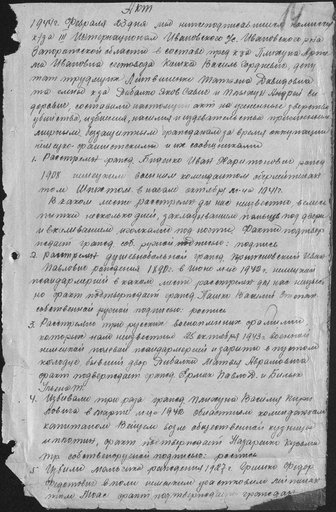 Акт
1944г. Февраля 22 дня мы нижеподписавшиеся комиссия
к-за III Интернационал Ивановского с/с. Ивановского р-на
Запорожской области в составе пред к-за
Ивановича счетовода Кошка Василь Сергеевич, депу
тат трудящих Литвиненко Татьяна Давидовна
та член к-за Дибалко Яков Савич и Пашкун Андрей Фи
дорович составили настоящий акт на учиненные зверства
убийства, избиения, насилия и издевательства причиненные
мирным, беззащитным гражданам за время оккупации
немецко-фашистскими и их сообщниками
1. Расстрелян гражд. Иван Харитонович рожд
1908 немецким военным комендантом
том в начале октября м-ца 1941г.
В каком месте расстрелян до нас неизвестно велись
пытки несколько дней, закладыванием пальцев под двери
и вкалыванием иголками под ногти. Факт подтвер
ждает гражд. соб. рукой подписью: подпись
2. Расстрелян душевнобольной гражд. Иван
Павлович рождения 1890г. в июне м-це 1943г. немецкой
жандармерией в каком месте расстрелян до нас неизвес
но факт подтверждает гражд. Пашко Василий Степан.
собственной рукой подписью: роспись
3. Расстреляно три русских военнопленных фамилии
которых нам неизвестно 25 октября 1943г. военной
немецкой полевой жандармерией и зарыты в пустом
колодце бывший двор Дибалко Матвея Авраамовича
факт подтверждает гражд. Ермак Павло Д. и Билик
4. Избивали три раза гражд. Пашкуна Василия Кирил
ловича в марте м-це 1942 областным комендантом
капитаном Вайцем возле общественной кузницы
и плетью, факт подтверждает Назаренко Кузьма
тр собственоручной подписью: роспись
5. Избили мальчика рождения 1927г. Еришко Федор
Федотович в поле немецким участковым
том факт подтверждает гражданка